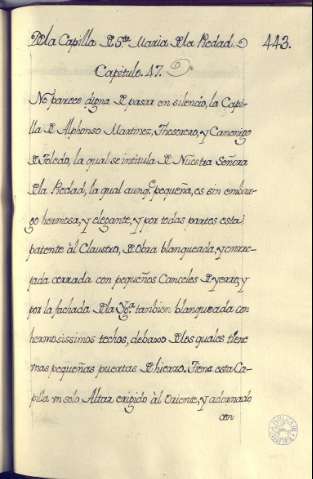 De la Capilla de Sta. Maria de la Piedad. 443.
Capitulo. 47.
No parece digna de pasar en silencio, la Capi-
lla de Alphonso Martinez, Thesorero, y Canonigo
de Toledo, la qual se intitula de Nuestra Señora
de la Piedad, la qual aunq.e pequeña, es sin embar-
go hermosa, y elegante, y por todas partes esta
patente àl Claustro, de obra blanqueada, y
jada cerrada con pequeños Canceles de yerro, y
por la fachada de la Yg.a tambien blanqueada con
hermosissimos techos, debaxo de los quales tiene
unas pequeñas puertas de hierro. Tiene esta Ca-
pilla un solo Altar erigido àl Oriente, y adornado
con